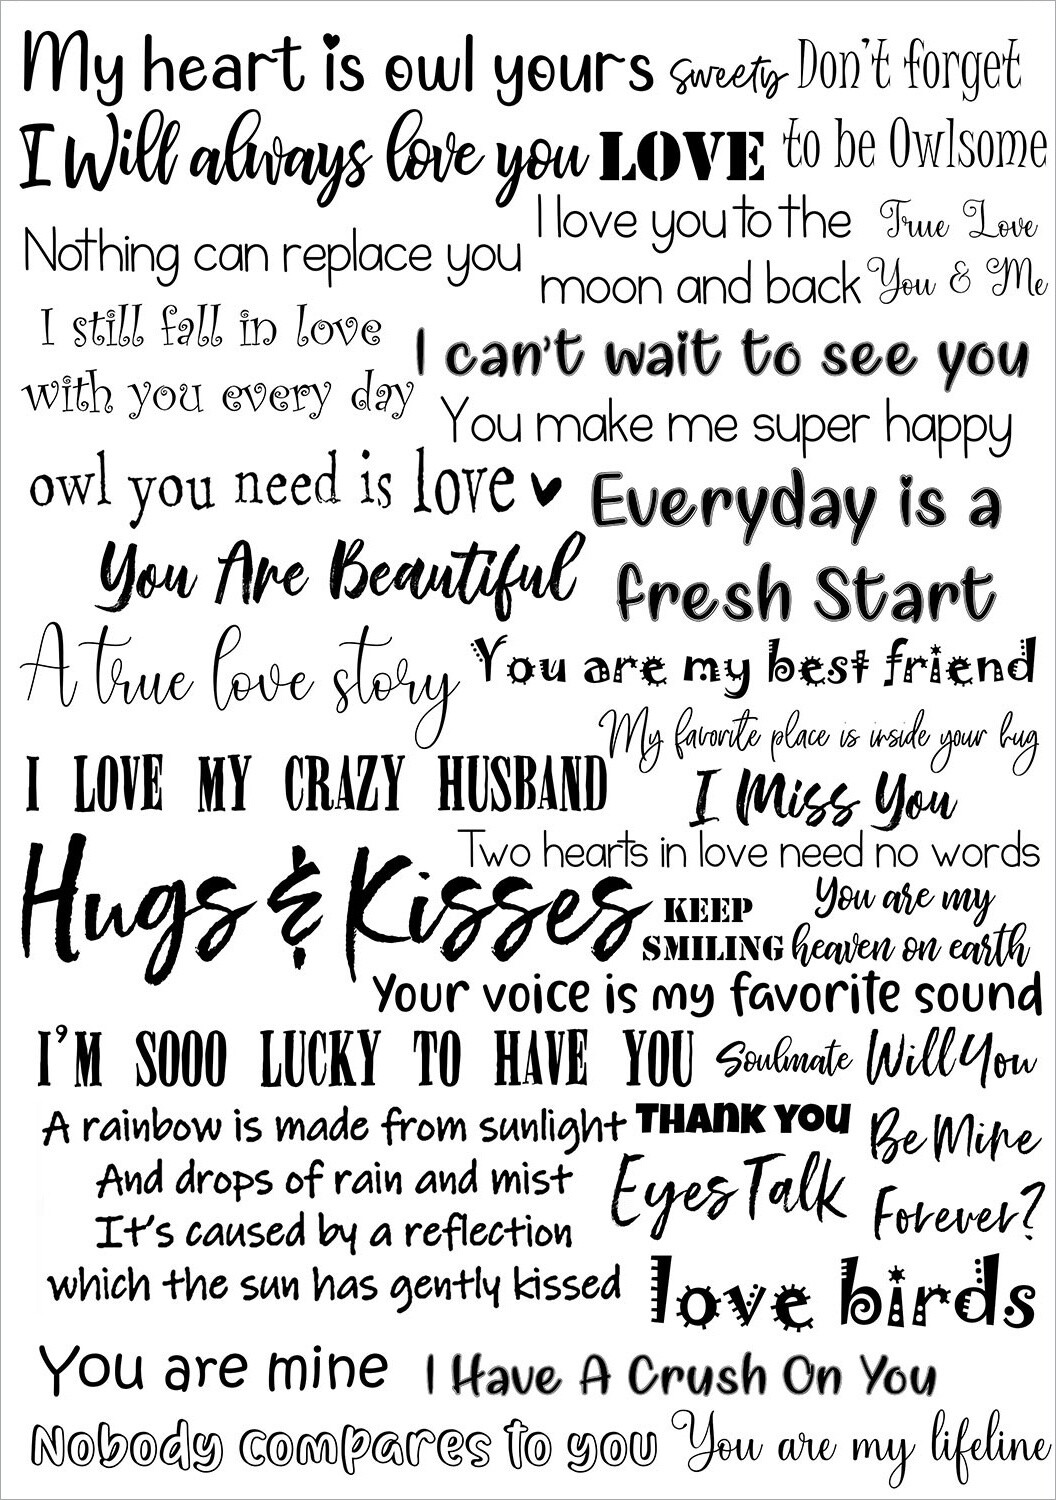 My heart is owl yours
sweety
Don't forget
to be Owlsome
I Will always love you
LOVE
Nothing can replace you
I love you to the
moon and back
True Love
You & Me
I still fall in love
with you every day
I can't wait to see you
You make me super happy
owl you need is love
Everyday is a
fresh Start
You Are Beautiful
A true love story
You are my best friend
My favorite place is inside your hug
I LOVE MY CRAZY HUSBAND
I Miss You
Two hearts in love need no words
Hugs & Kisses
KEEP
SMILING
You are my
heaven on earth
Your voice is my favorite sound
I'M SOOO LUCKY TO HAVE YOU
Soulmate
Will You
Be Mine
Forever?
A rainbow is made from sunlight
And drops of rain and mist
It's caused by a reflection
which the sun has gently kissed
THANK YOU
Eyes Talk
love birds
You are mine
I Have A Crush On You
Nobody compares to you
You are my lifeline